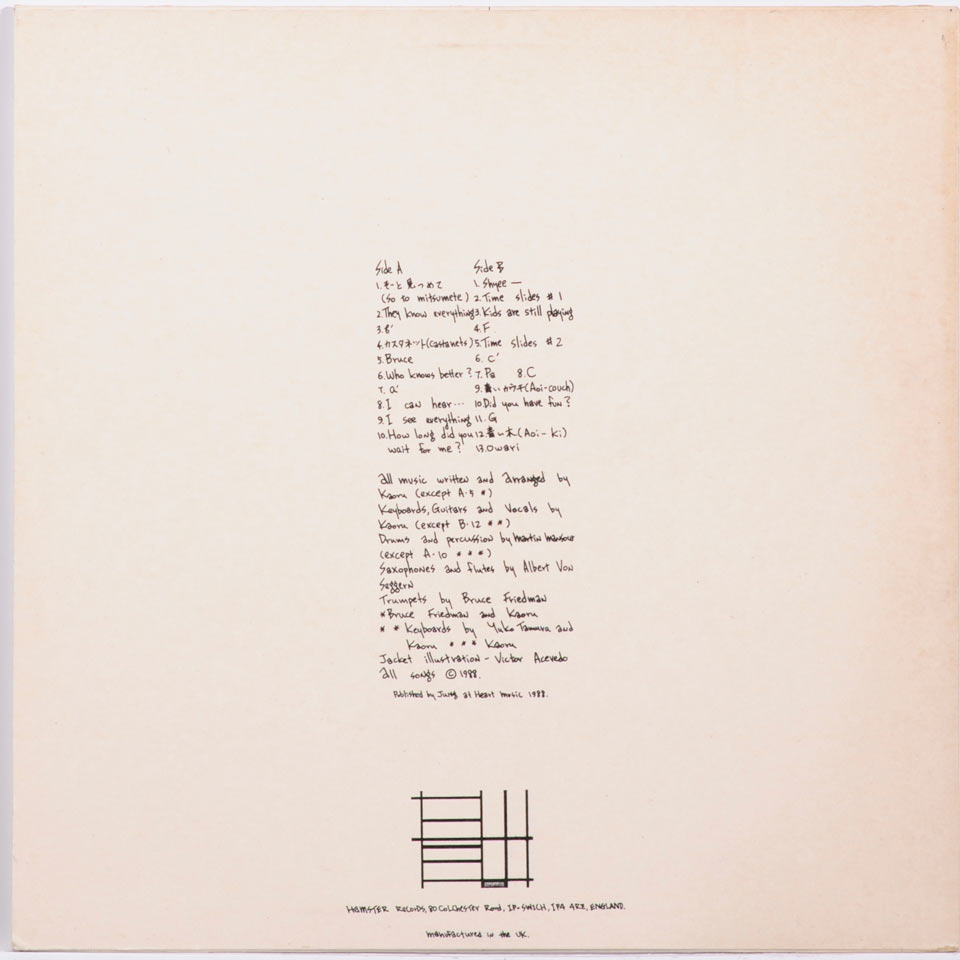 Side A
1.そーと見つめて
(So to mitsumete)
2.They know everything
3.g'
4.カスタネット(castanets)
5.Bruce
6.Who knows better?
7.a'
8.I can hear...
9.I see everything
10.How long did you
wait for me?
Side B
1.Shyee—
2.Time slides #1
3.Kids are still playing
4.F
5.Time slides #2
6.C'
7.Pa 8.C
9.青いカウチ(Aoi-couch)
10.Did you have fun?
11.G
12.青い木(Aoi-ki)
13.Owari
All music written and arranged by
Kaoru (except A-5 *)
Keyboards, Guitars and Vocals by
Kaoru (except B-12 **)
Drums and percussion by Martin Mansour
(except A-10 ***)
Saxophones and flutes by Albert Von
Seggern
Trumpets by Bruce Friedman
*Bruce Friedman and Kaoru
**Keyboards by Yuko Tamura and
Kaoru *** Kaoru
Jacket illustration - Victor Acevedo
All songs © 1988.
Published by Jung at Heart music 1988.
HAMSTER RECORDS, 80 COLCHESTER Road, IP-SWICH, IP4 4RZ, ENGLAND.
Manufactured in the UK.